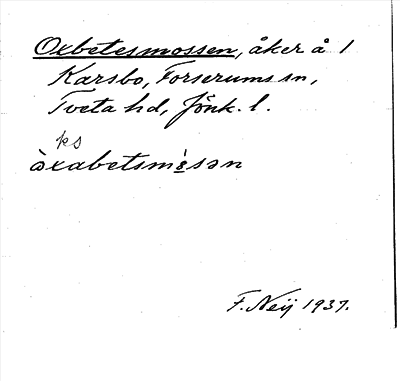 Oxbetesmossen, åker å 1
Karsbo, Forserums sn,
Tveta hd, Jönk. l.
ks
òxabetsmòsən
F. Neij 1937.